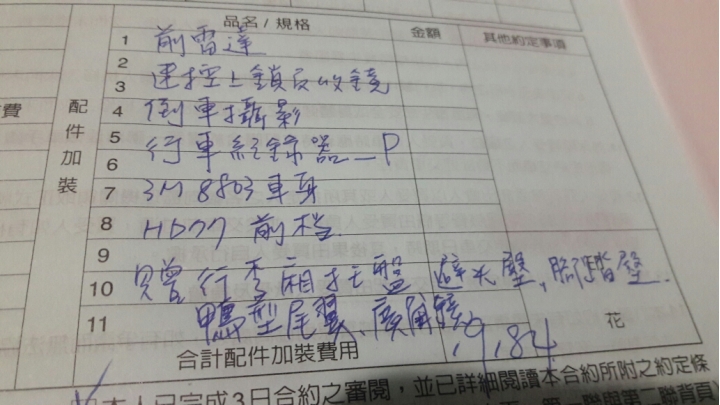 品名/規格 金額 其他約定事項
配件加裝
費
1 前雷達
2
3 遥控上鎖及收鏡
4 倒車攝影
5 行車紀錄器 P
6
7 3M 8803車身
8 HD77 前档.
9
10 行李廂托盤 避光墊、腳踏墊.
11 鴨型尾翼 廣角鏡
合計配件加裝費用 花
本人已完成3日合約之審閱,並已詳細閱讀本合約所附之約定條